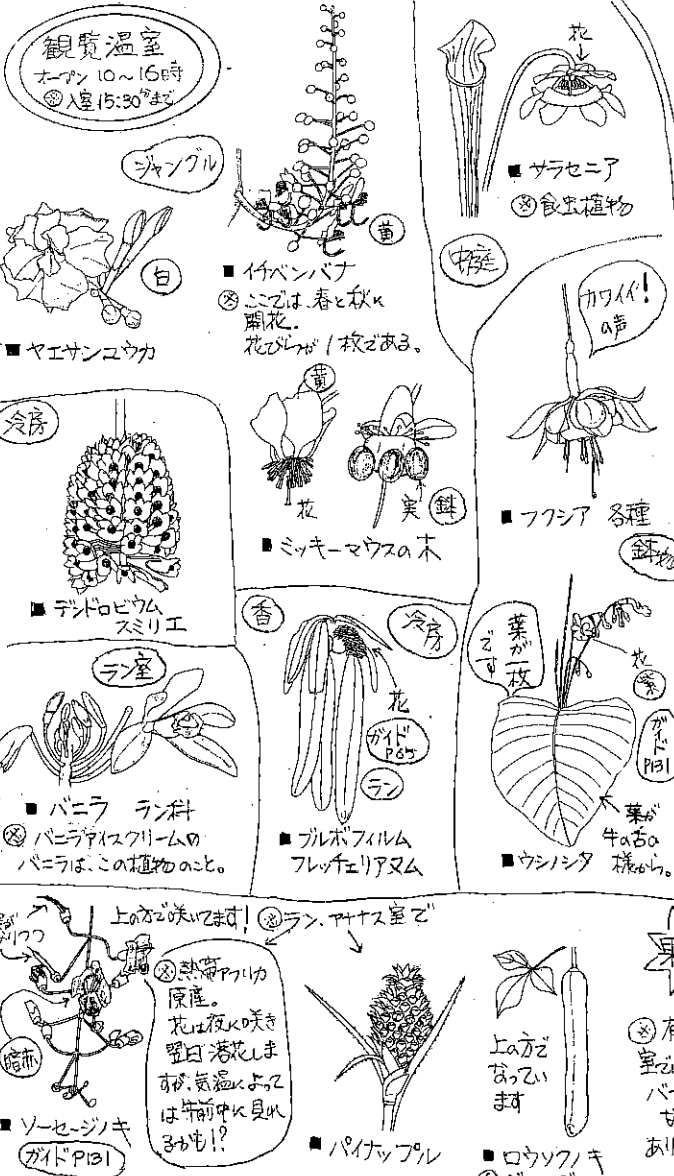 観覧温室
オープン 10～16時
※入室15:30分まで
ジャングル
白
■ ヤエサンユウカ
黄
■ イチベンバナ
※ ここでは、春と秋に
開花。
花びらが1枚である。
花
■ サラセニア
※食虫植物
中庭
カワイイ!
の声
■ フクシア 各種
鉢物
冷房
■ デンドロビウム
スミリエ
黄
花
実
鉢
■ ミッキーマウスの木
ラン室
■ バニラ ラン科
※ バニラアイスクリームの
バニラは、この植物のこと。
香
冷房
花
ガイド
P65
ラン
■ ブルボフィルム
フレッチェリアヌム
葉が一枚
です
花
紫
ガイド
P131
葉が
牛の舌の
様から。
■ウシノシタ
上の方で咲いてます!
※ラン、アナナス室で
暗赤
■ ソーセージノキ
ガイド P131
※熱帯アフリカ
原産。
花は夜に咲き
翌日落花しま
すが、気温によって
は午前中に見れ
るかも!?
■ パイナップル
上の方で
なってい
ます
■ ロウソクノキ